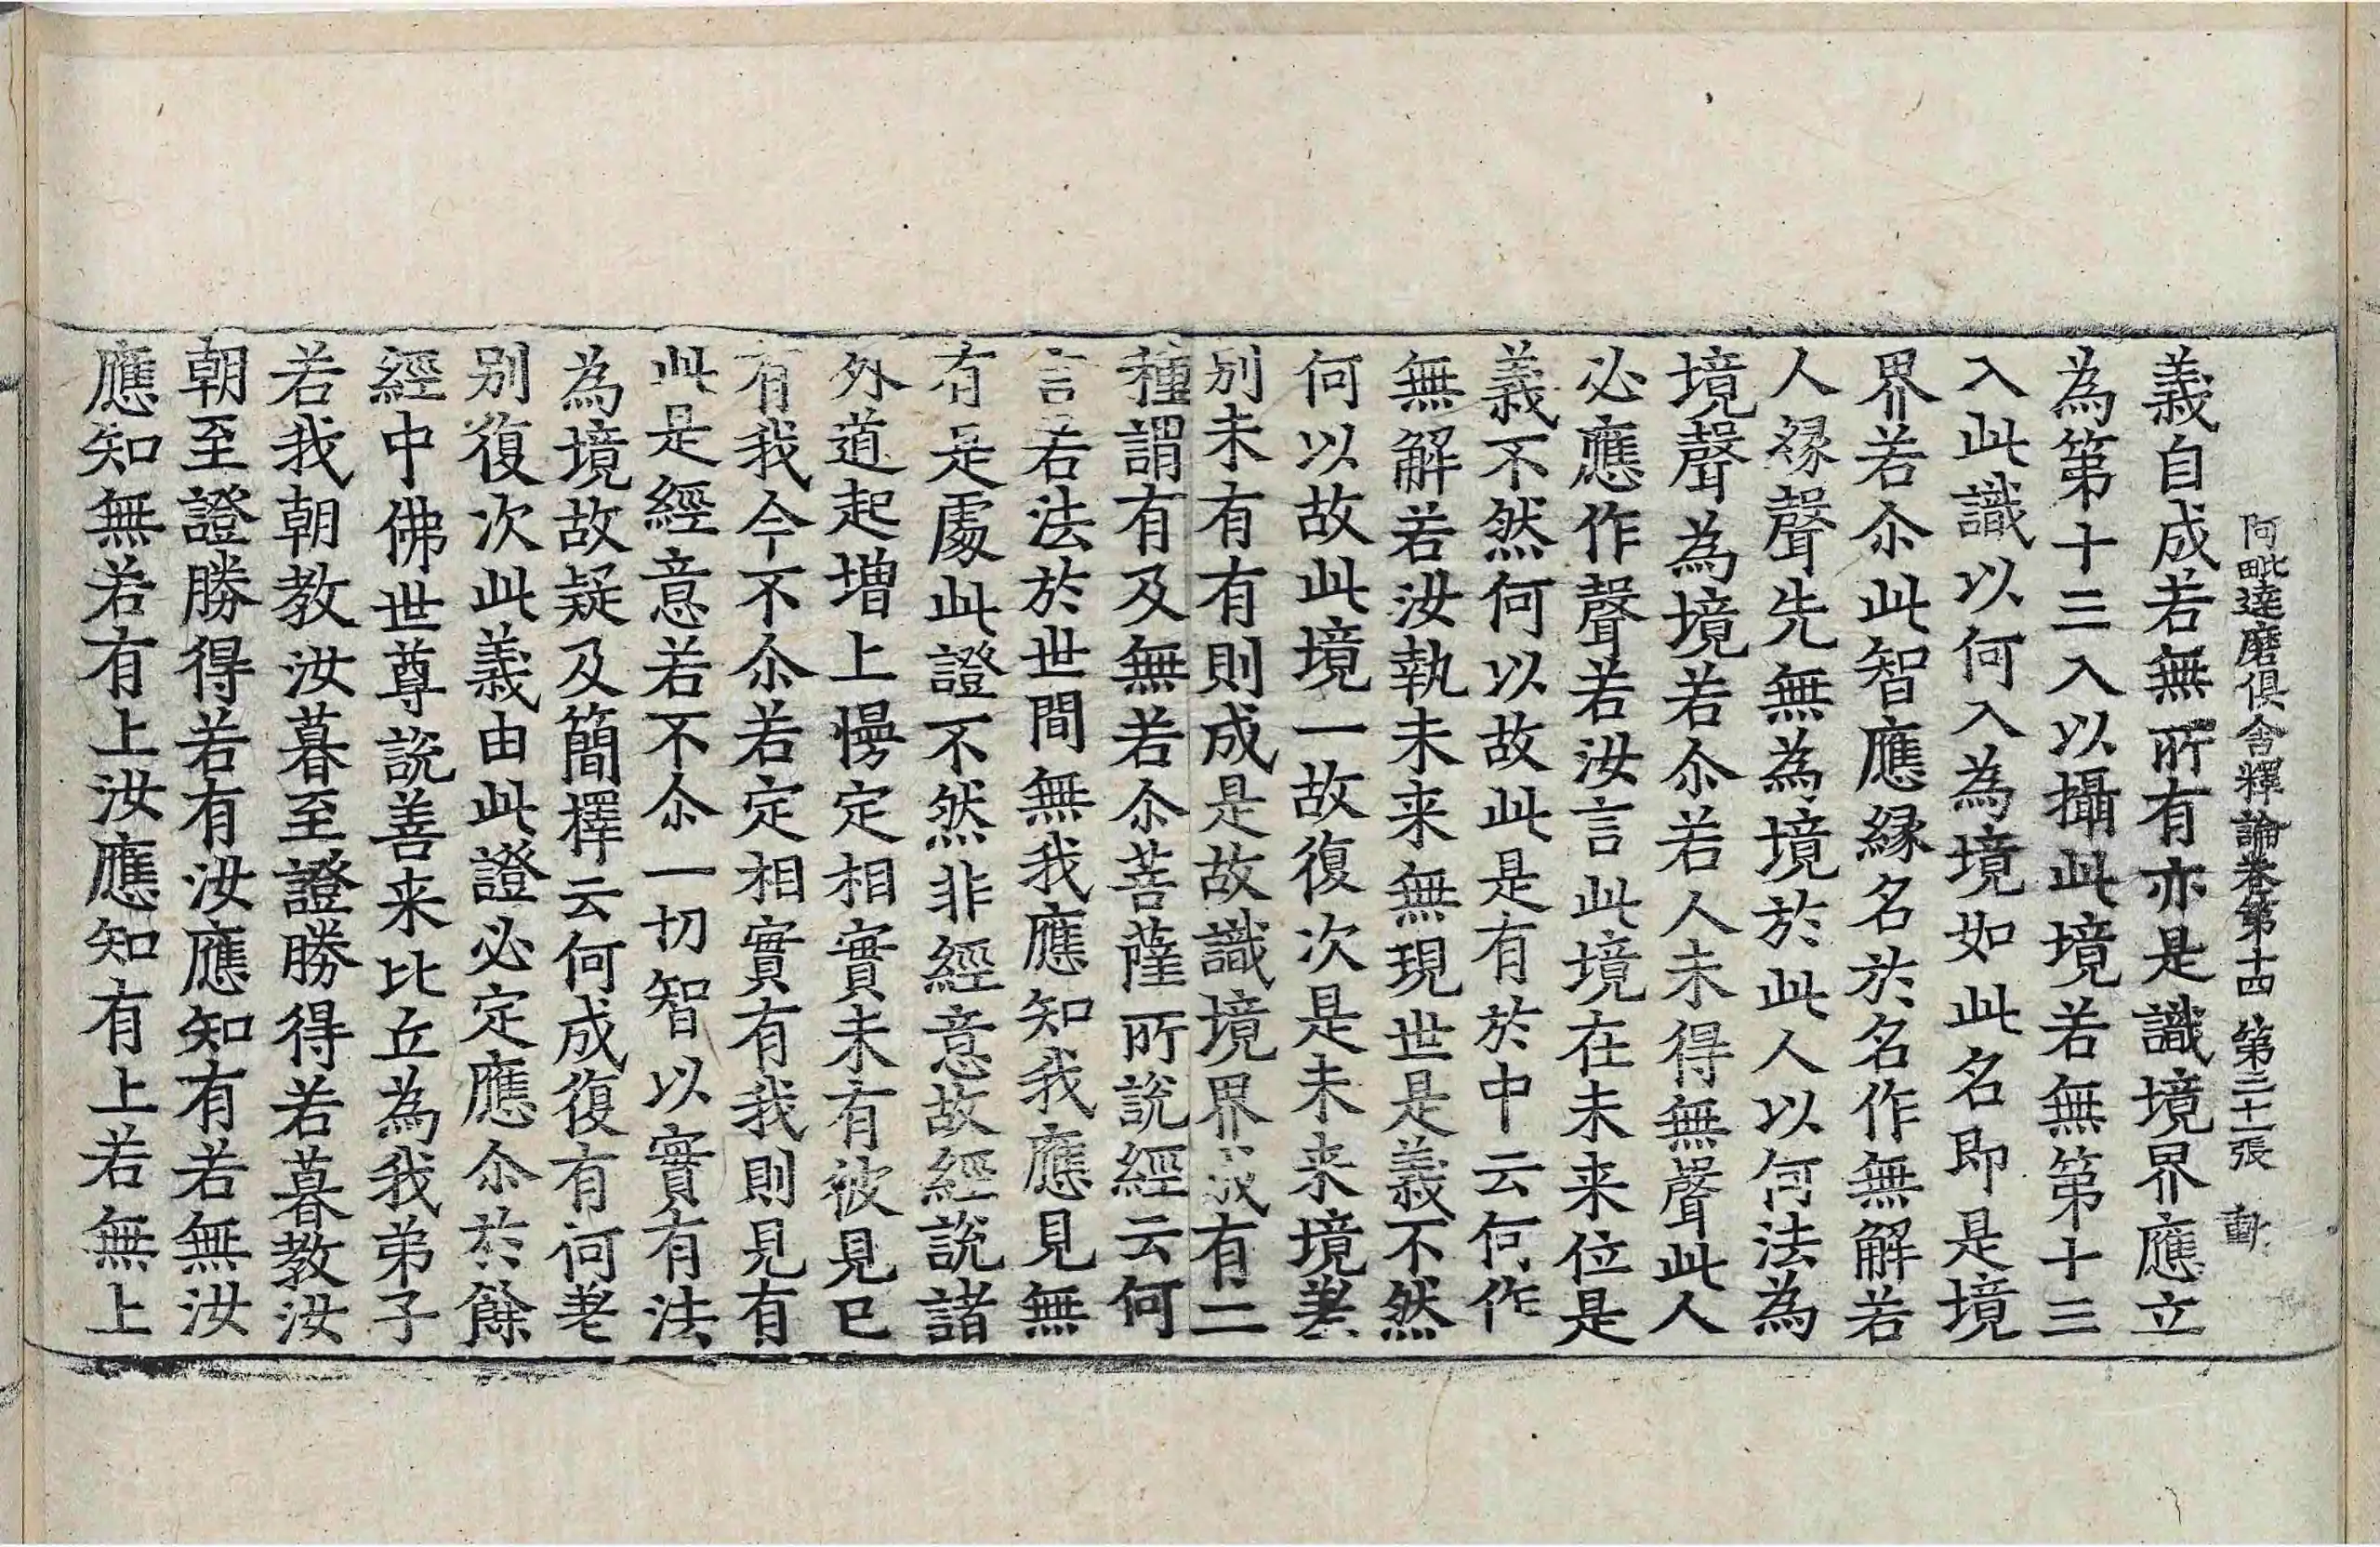 阿毗達磨俱舍釋論卷第十四 第三十一張 動
義自成若無所有亦是識境界應立
為第十三入以攝此境若無第十三
入此識以何入為境如此名即是境
界若尒此智應縁名於名作無解若
人縁聲先無為境於此人以何法為
境聲為境若尒若人未得無聲此人
必應作聲若汝言此境在未来位是
義不然何以故此是有於中云何作
無解若汝執未来無現世是義不然
何以故此境一故復次是未来境差
別未有有則成是故識境界或有二
種謂有及無若尒菩薩所說經云何
言若法於世間無我應知我應見無
有是處此證不然非經意故經說諸
外道起增上慢定相實未有彼見已
有我今不尒若定相實有我則見有
此是經意若不尒一切智以實有法
為境故疑及簡擇云何成復有何差
別復次此義由此證必定應尒於餘
經中佛世尊說善来比丘為我弟子
若我朝教汝暮至證勝得若暮教汝
朝至證勝得若有汝應知有若無汝
應知無若有上汝應知有上若無上